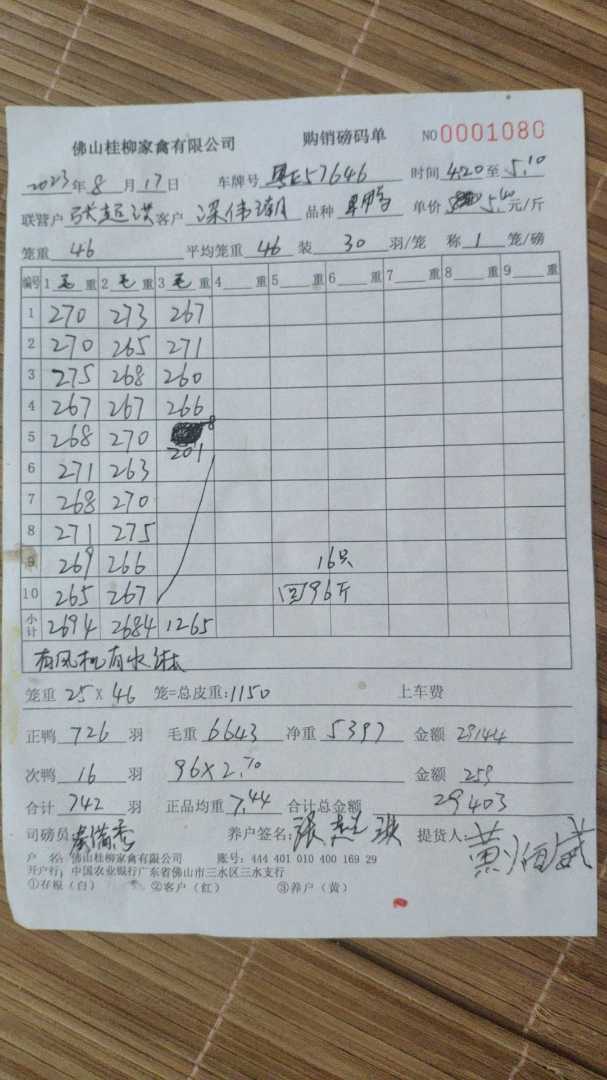 佛山桂柳家禽有限公司 购销磅码单 NO 0001080
2023年8月17日 车牌号 粤E57646 时间 4.20至5.10
联营户 张超洪 客户 深伟潮 品种 单价 5.40元/斤
笼重 46 平均笼重 46 装 30 羽/笼 称 1 笼/磅
编号 1 毛 重 2 毛 重 3 毛 重 4 重 5 重 6 重 7 重 8 重 9 重
1 270 273 267
2 270 265 271
3 275 268 260
4 267 267 266
5 268 270 201
6 271 263
7 268 270
8 271 275
9 269 266 16只
10 265 267 回96斤
小计 2694 2684 1265
有风机有水
笼重 25×46 笼=总皮重:1150 上车费
正鸭 726 羽 毛重 6643 净重 5397 金额 29144
次鸭 16 羽 96×2.70 金额 259
合计 742 羽 正品均重 7.44 合计总金额 29403
司磅员 养户签名: 张超洪 提货人: 黄
户 名: 佛山桂柳家禽有限公司 账号: 444 401 010 400 169 29
开户行: 中国农业银行广东省佛山市三水区三水支行
①存根（白） ②客户（红） ③养户（黄）